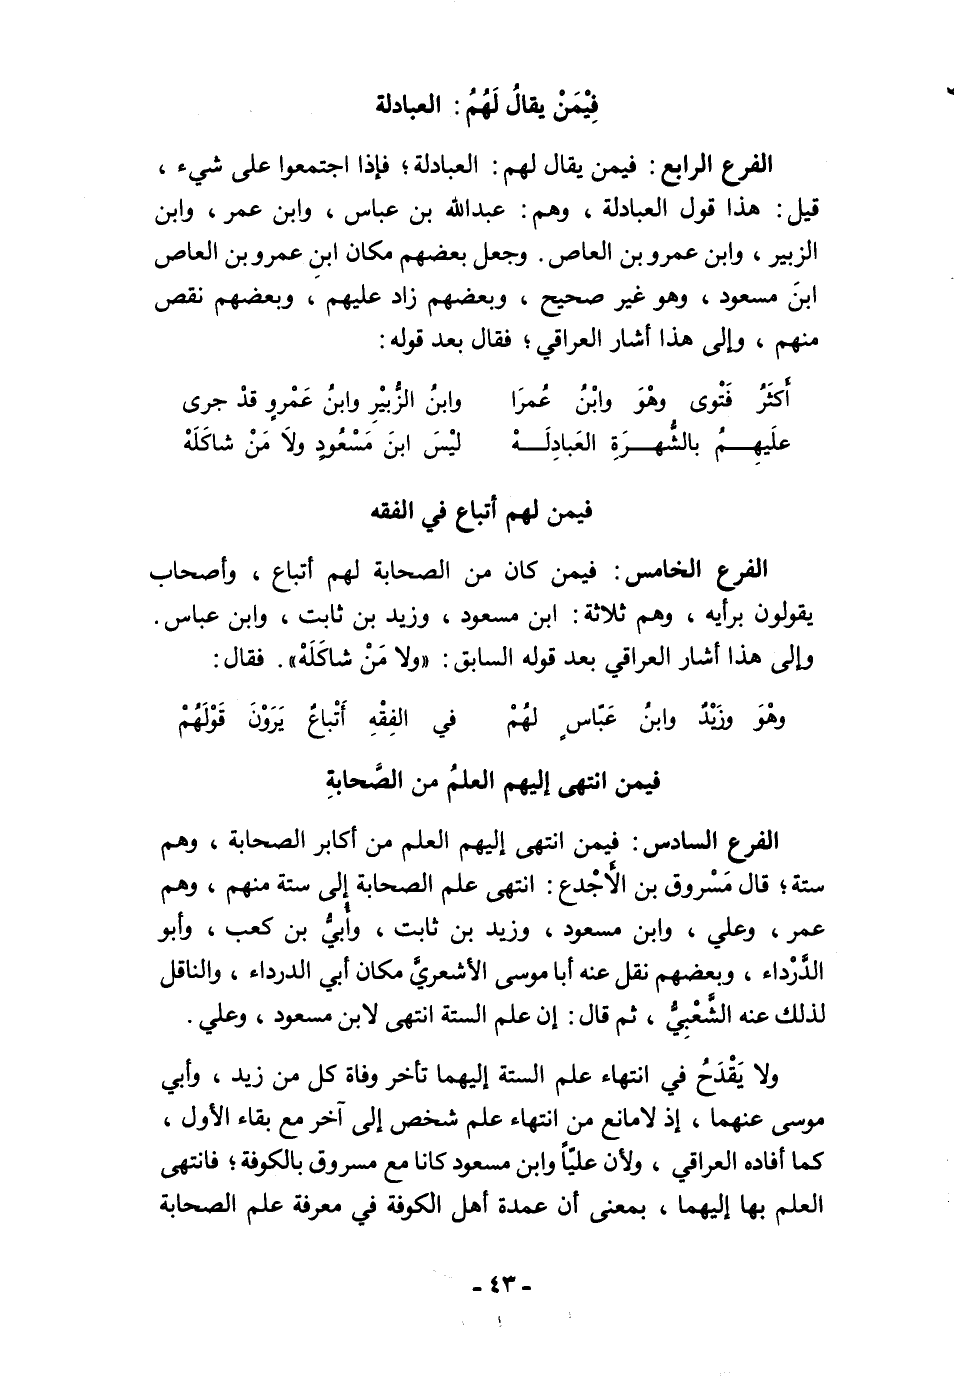 فِيْمَنْ يقالُ لَهُمُ : العبادلة
الفرع الرابع : فيمن يقال لهم : العبادلة؛ فإذا اجتمعوا على شيء ،
قيل : هذا قول العبادلة ، وهم : عبدالله بن عباس ، وابن عمر ، وابن
الزبير ، وابن عمرو بن العاص . وجعل بعضهم مكان ابنِ عمرو بن العاص
ابنَ مسعود ، وهو غير صحيح ، وبعضهم زاد عليهم ، وبعضهم نقص
منهم ، وإلى هذا أشار العراقي؛ فقال بعد قوله :
أَكثَرُ فَتْوى وهْوَ وابْنُ عُمَرَا وابنُ الزُّبيْرِ وابنُ عَمْروٍ قدْ جرى
علَيهِمُ بالشُّهرَةِ العَبادِلَهْ ليْسَ ابنَ مَسْعُودٍ ولاَ مَنْ شاكَلَهْ
فيمن لهم أتباع في الفقه
الفرع الخامس : فيمن كان من الصحابة لهم أتباع ، وأصحاب
يقولون برأيه ، وهم ثلاثة : ابن مسعود ، وزيد بن ثابت ، وابن عباس .
وإلى هذا أشار العراقي بعد قوله السابق : «ولا مَنْ شاكَلَهْ» . فقال :
وهْوَ وزَيْدٌ وابنُ عَبّاسٍ لهُمْ في الفِقْهِ أَتْباعٌ يَرَوْنَ قَوْلَهُمْ
فيمن انتهى إليهم العلمُ من الصَّحابةِ
الفرع السادس : فيمن انتهى إليهم العلم من أكابر الصحابة ، وهم
ستة؛ قال مَسْروق بن الأَجْدع : انتهى علم الصحابة إلى ستة منهم ، وهم
عمر ، وعلي ، وابن مسعود ، وزيد بن ثابت ، وأُبيُّ بن كعب ، وأبو
الدَّرْداء ، وبعضهم نقل عنه أبا موسى الأشعريَّ مكان أبي الدرداء ، والناقل
لذلك عنه الشَّعْبِيُّ ، ثم قال : إن علم الستة انتهى لابن مسعود ، وعلي .
ولا يَقْدَحُ في انتهاء علم الستة إليهما تأخر وفاة كل من زيد ، وأبي
موسى عنهما ، إذ لامانع من انتهاء علم شخص إلى آخر مع بقاء الأول ،
كما أفاده العراقي ، ولأن عليّاً وابن مسعود كانا مع مسروق بالكوفة؛ فانتهى
العلم بها إليهما ، بمعنى أن عمدة أهل الكوفة في معرفة علم الصحابة
- ٤٣ -